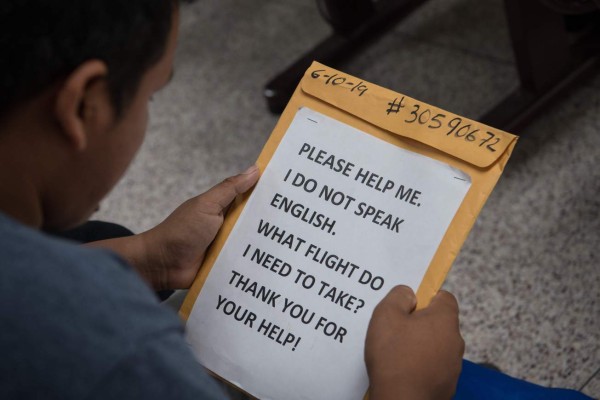 6-10-19 # 30590672
PLEASE HELP ME.
I DO NOT SPEAK
ENGLISH.
WHAT FLIGHT DO
I NEED TO TAKE?
THANK YOU FOR
YOUR HELP!